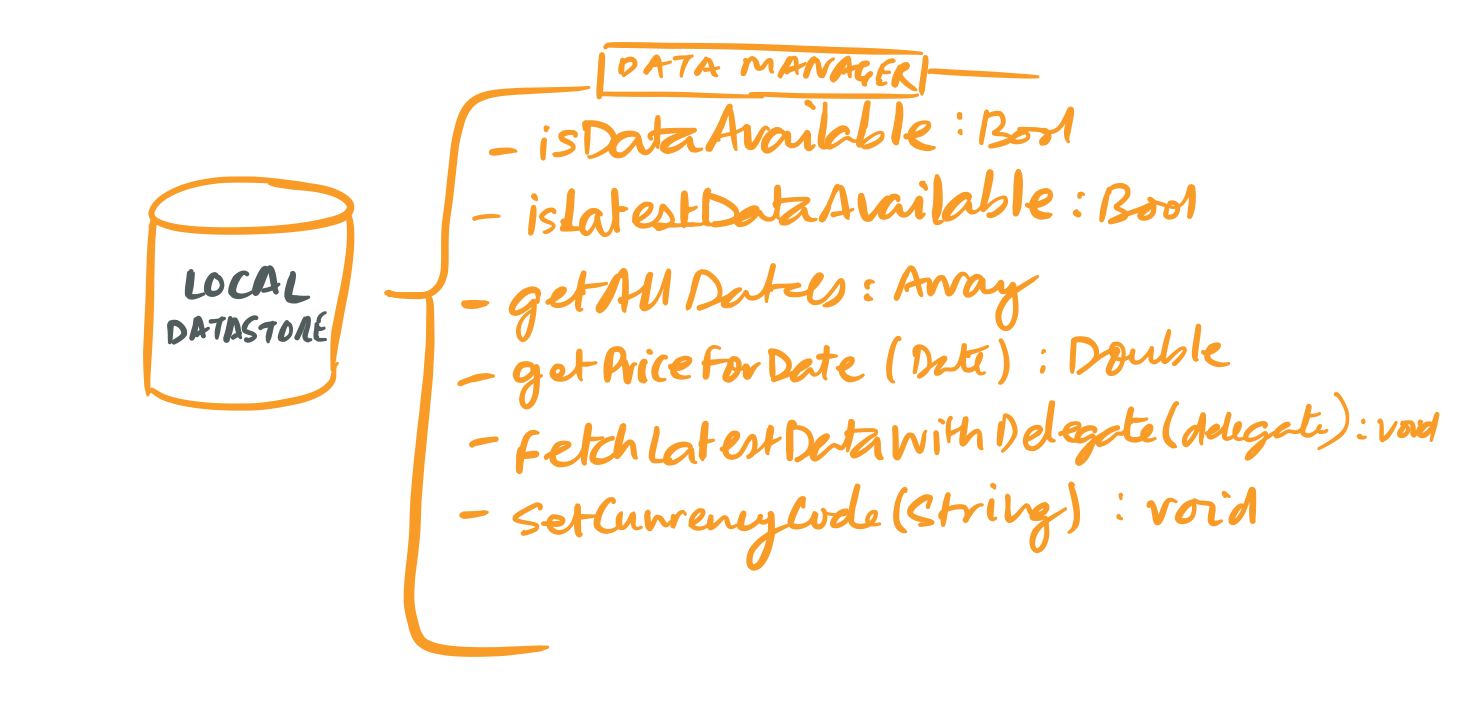 DATA MANAGER
- isDataAvailable : Bool
- isLatestDataAvailable : Bool
- getAllDates : Array
- getPriceForDate (Date) : Double
- FetchLatestDataWithDelegate(delegate) : void
- SetCurrencyCode (String) : void
LOCAL
DATASTORE